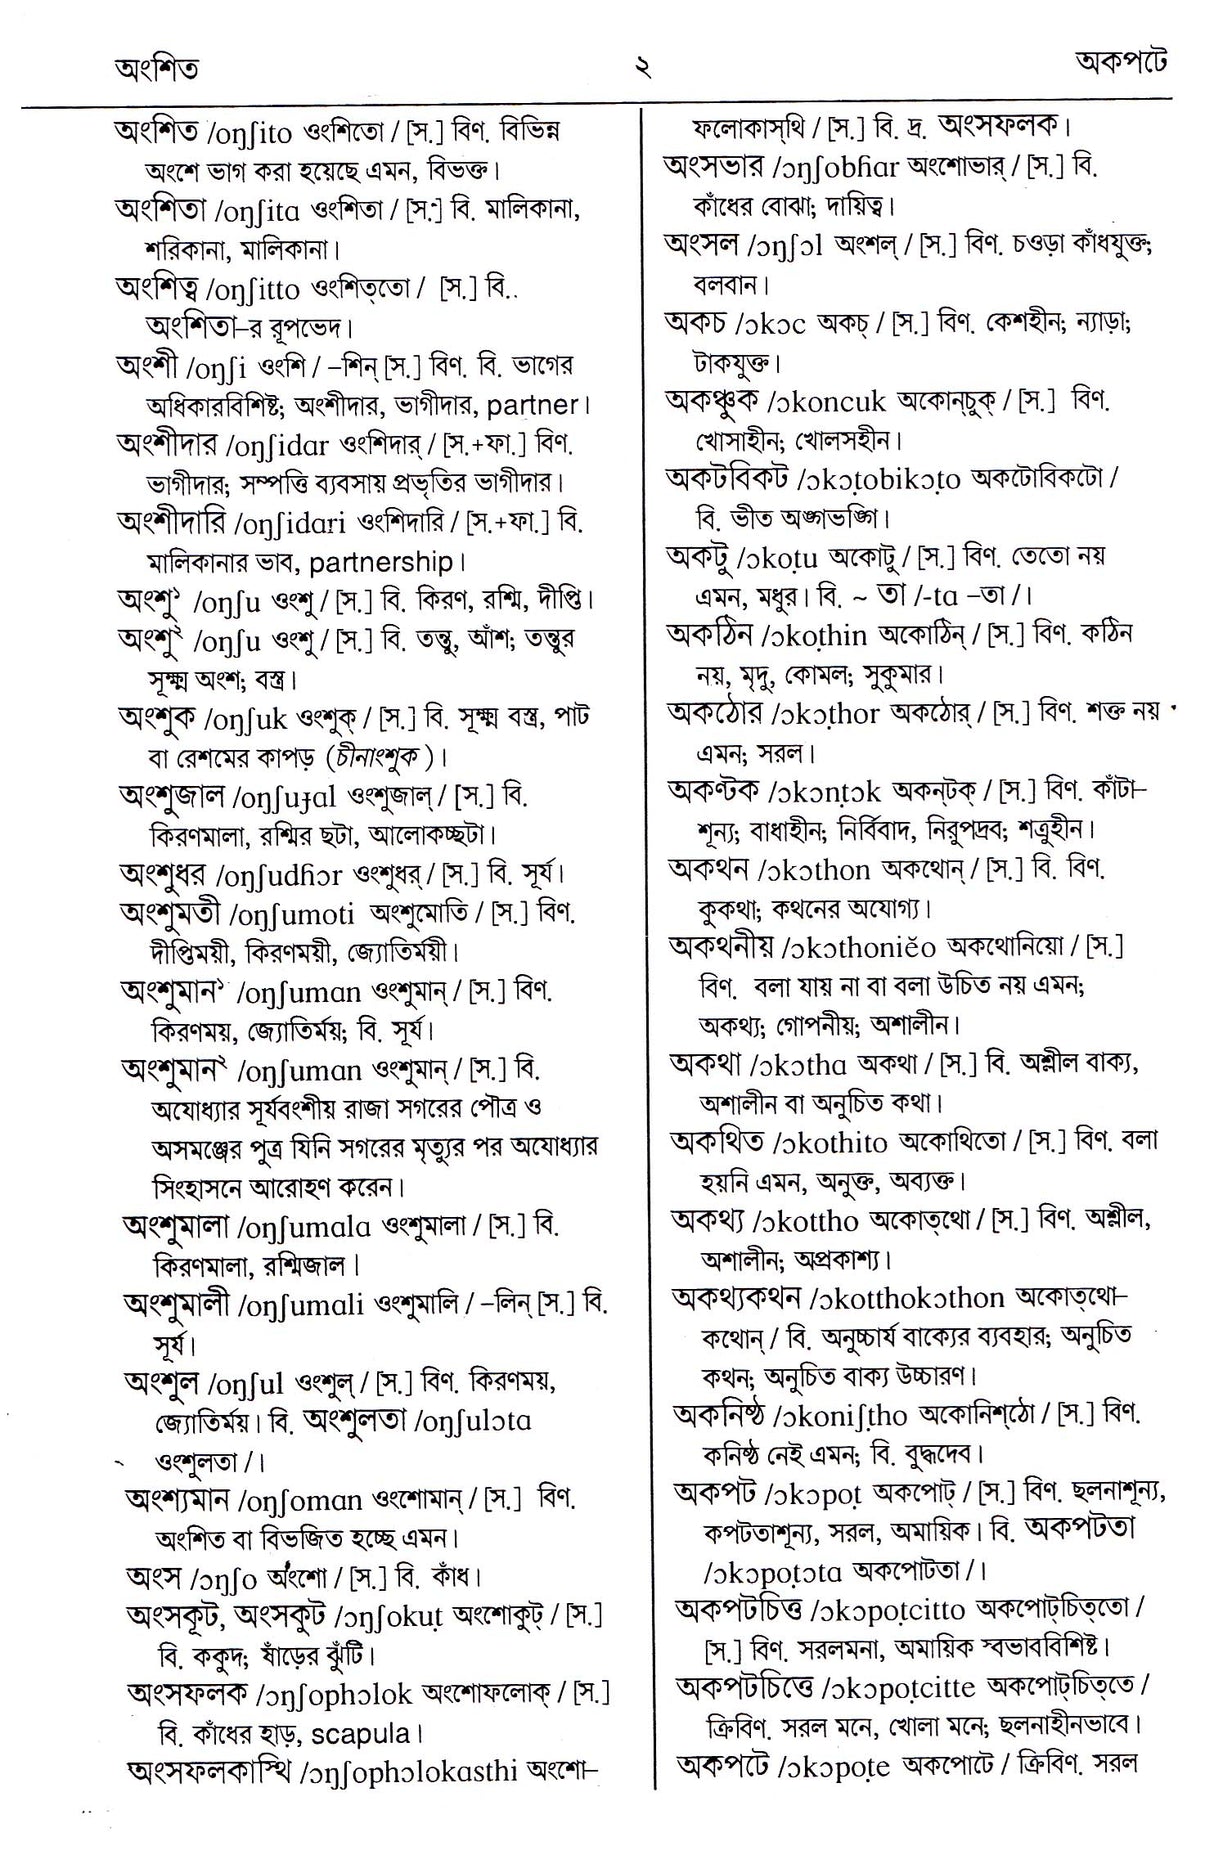 অংশিত
২
অকপটে
অংশিত /oŋʃito ওংশিতো / [স.] বিণ. বিভিন্ন
অংশে ভাগ করা হয়েছে এমন, বিভক্ত।
অংশিতা /oŋʃita ওংশিতা / [স.] বি. মালিকানা,
শরিকানা, মালিকানা।
অংশিত্ব /oŋʃitto ওংশিত্‌তো / [স.] বি..
অংশিতা–র রূপভেদ।
অংশী /oŋʃi ওংশি / –শিন্ [স.] বিণ. বি. ভাগের
অধিকারবিশিষ্ট; অংশীদার, ভাগীদার, partner।
অংশীদার /oŋʃidar ওংশিদার্ / [স.+ফা.] বিণ.
ভাগীদার; সম্পত্তি ব্যবসায় প্রভৃতির ভাগীদার।
অংশীদারি /oŋʃidari ওংশিদারি / [স.+ফা.] বি.
মালিকানার ভাব, partnership।
অংশু১ /oŋʃu ওংশু / [স.] বি. কিরণ, রশ্মি, দীপ্তি।
অংশু২ /oŋʃu ওংশু / [স.] বি. তন্তু, আঁশ; তন্তুর
সূক্ষ্ম অংশ; বস্ত্র।
অংশুক /oŋʃuk ওংশুক্ / [স.] বি. সূক্ষ্ম বস্ত্র, পাট
বা রেশমের কাপড় (চীনাংশুক)।
অংশুজাল /oŋʃuɟal ওংশুজাল্ / [স.] বি.
কিরণমালা, রশ্মির ছটা, আলোকচ্ছটা।
অংশুধর /oŋʃudɦɔr ওংশুধর্ / [স.] বি. সূর্য।
অংশুমতী /oŋʃumoti অংশুমোতি / [স.] বিণ.
দীপ্তিময়ী, কিরণময়ী, জ্যোতির্ময়ী।
অংশুমান১ /oŋʃuman ওংশুমান্ / [স.] বিণ.
কিরণময়, জ্যোতির্ময়; বি. সূর্য।
অংশুমান২ /oŋʃuman ওংশুমান্ / [স.] বি.
অযোধ্যার সূর্যবংশীয় রাজা সগরের পৌত্র ও
অসমঞ্জের পুত্র যিনি সগরের মৃত্যুর পর অযোধ্যার
সিংহাসনে আরোহণ করেন।
অংশুমালা /oŋʃumala ওংশুমালা / [স.] বি.
কিরণমালা, রশ্মিজাল।
অংশুমালী /oŋʃumali ওংশুমালি / –লিন্ [স.] বি.
সূর্য।
অংশুল /oŋʃul ওংশুল্ / [স.] বিণ. কিরণময়,
জ্যোতির্ময়। বি. অংশুলতা /oŋʃulɔta
ওংশুলতা /।
অংশ্যমান /oŋʃoman ওংশোমান্ / [স.] বিণ.
অংশিত বা বিভজিত হচ্ছে এমন।
অংস /ɔŋʃo অংশো / [স.] বি. কাঁধ।
অংসকূট, অংসকুট /ɔŋʃokuṭ অংশোকুট্ / [স.]
বি. ককুদ; ষাঁড়ের ঝুঁটি।
অংসফলক /ɔŋʃophɔlok অংশোফলোক্ / [স.]
বি. কাঁধের হাড়, scapula।
অংসফলকাস্থি /ɔŋʃophɔlokasthi অংশো–
ফলোকাস্‌থি / [স.] বি. দ্র. অংসফলক।
অংসভার /ɔŋʃobɦar অংশোভার্ / [স.] বি.
কাঁধের বোঝা; দায়িত্ব।
অংসল /ɔŋʃɔl অংশল্ / [স.] বিণ. চওড়া কাঁধযুক্ত;
বলবান।
অকচ /ɔkɔc অকচ্ / [স.] বিণ. কেশহীন; ন্যাড়া;
টাকযুক্ত।
অকঞ্চুক /ɔkoncuk অকোন্‌চুক্ / [স.] বিণ.
খোসাহীন; খোলসহীন।
অকটবিকট /ɔkɔṭobikɔṭo অকটোবিকটো /
বি. ভীত অঙ্গভঙ্গি।
অকটু /ɔkoṭu অকোটু / [স.] বিণ. তেতো নয়
এমন, মধুর। বি. ~ তা /-ta –তা /।
অকঠিন /ɔkoṭhin অকোঠিন্ / [স.] বিণ. কঠিন
নয়, মৃদু, কোমল; সুকুমার।
অকঠোর /ɔkɔṭhor অকঠোর্ / [স.] বিণ. শক্ত নয়
এমন; সরল।
অকণ্টক /ɔkɔnṭɔk অকন্‌টক্ / [স.] বিণ. কাঁটা–
শূন্য; বাধাহীন; নির্বিবাদ, নিরুপদ্রব; শত্রুহীন।
অকথন /ɔkɔthon অকথোন্ / [স.] বি. বিণ.
কুকথা; কথনের অযোগ্য।
অকথনীয় /ɔkɔthoniĕo অকথোনিয়ো / [স.]
বিণ. বলা যায় না বা বলা উচিত নয় এমন;
অকথ্য; গোপনীয়; অশালীন।
অকথা /ɔkɔtha অকথা / [স.] বি. অশ্লীল বাক্য,
অশালীন বা অনুচিত কথা।
অকথিত /ɔkothito অকোথিতো / [স.] বিণ. বলা
হয়নি এমন, অনুক্ত, অব্যক্ত।
অকথ্য /ɔkottho অকোত্‌থো / [স.] বিণ. অশ্লীল,
অশালীন; অপ্রকাশ্য।
অকথ্যকথন /ɔkotthokɔthon অকোত্‌থো–
কথোন্ / বি. অনুচ্চার্য বাক্যের ব্যবহার; অনুচিত
কথন; অনুচিত বাক্য উচ্চারণ।
অকনিষ্ঠ /ɔkoniʃṭho অকোনিশ্‌ঠো / [স.] বিণ.
কনিষ্ঠ নেই এমন; বি. বুদ্ধদেব।
অকপট /ɔkɔpoṭ অকপোট্ / [স.] বিণ. ছলনাশূন্য,
কপটতাশূন্য, সরল, অমায়িক। বি. অকপটতা
/ɔkɔpoṭɔta অকপোটতা /।
অকপটচিত্ত /ɔkɔpoṭcitto অকপোট্‌চিত্‌তো /
[স.] বিণ. সরলমনা, অমায়িক স্বভাববিশিষ্ট।
অকপটচিত্তে /ɔkɔpoṭcitte অকপোট্‌চিত্‌তে /
ক্রিবিণ. সরল মনে, খোলা মনে; ছলনাহীনভাবে।
অকপটে /ɔkɔpoṭe অকপোটে / ক্রিবিণ. সরল